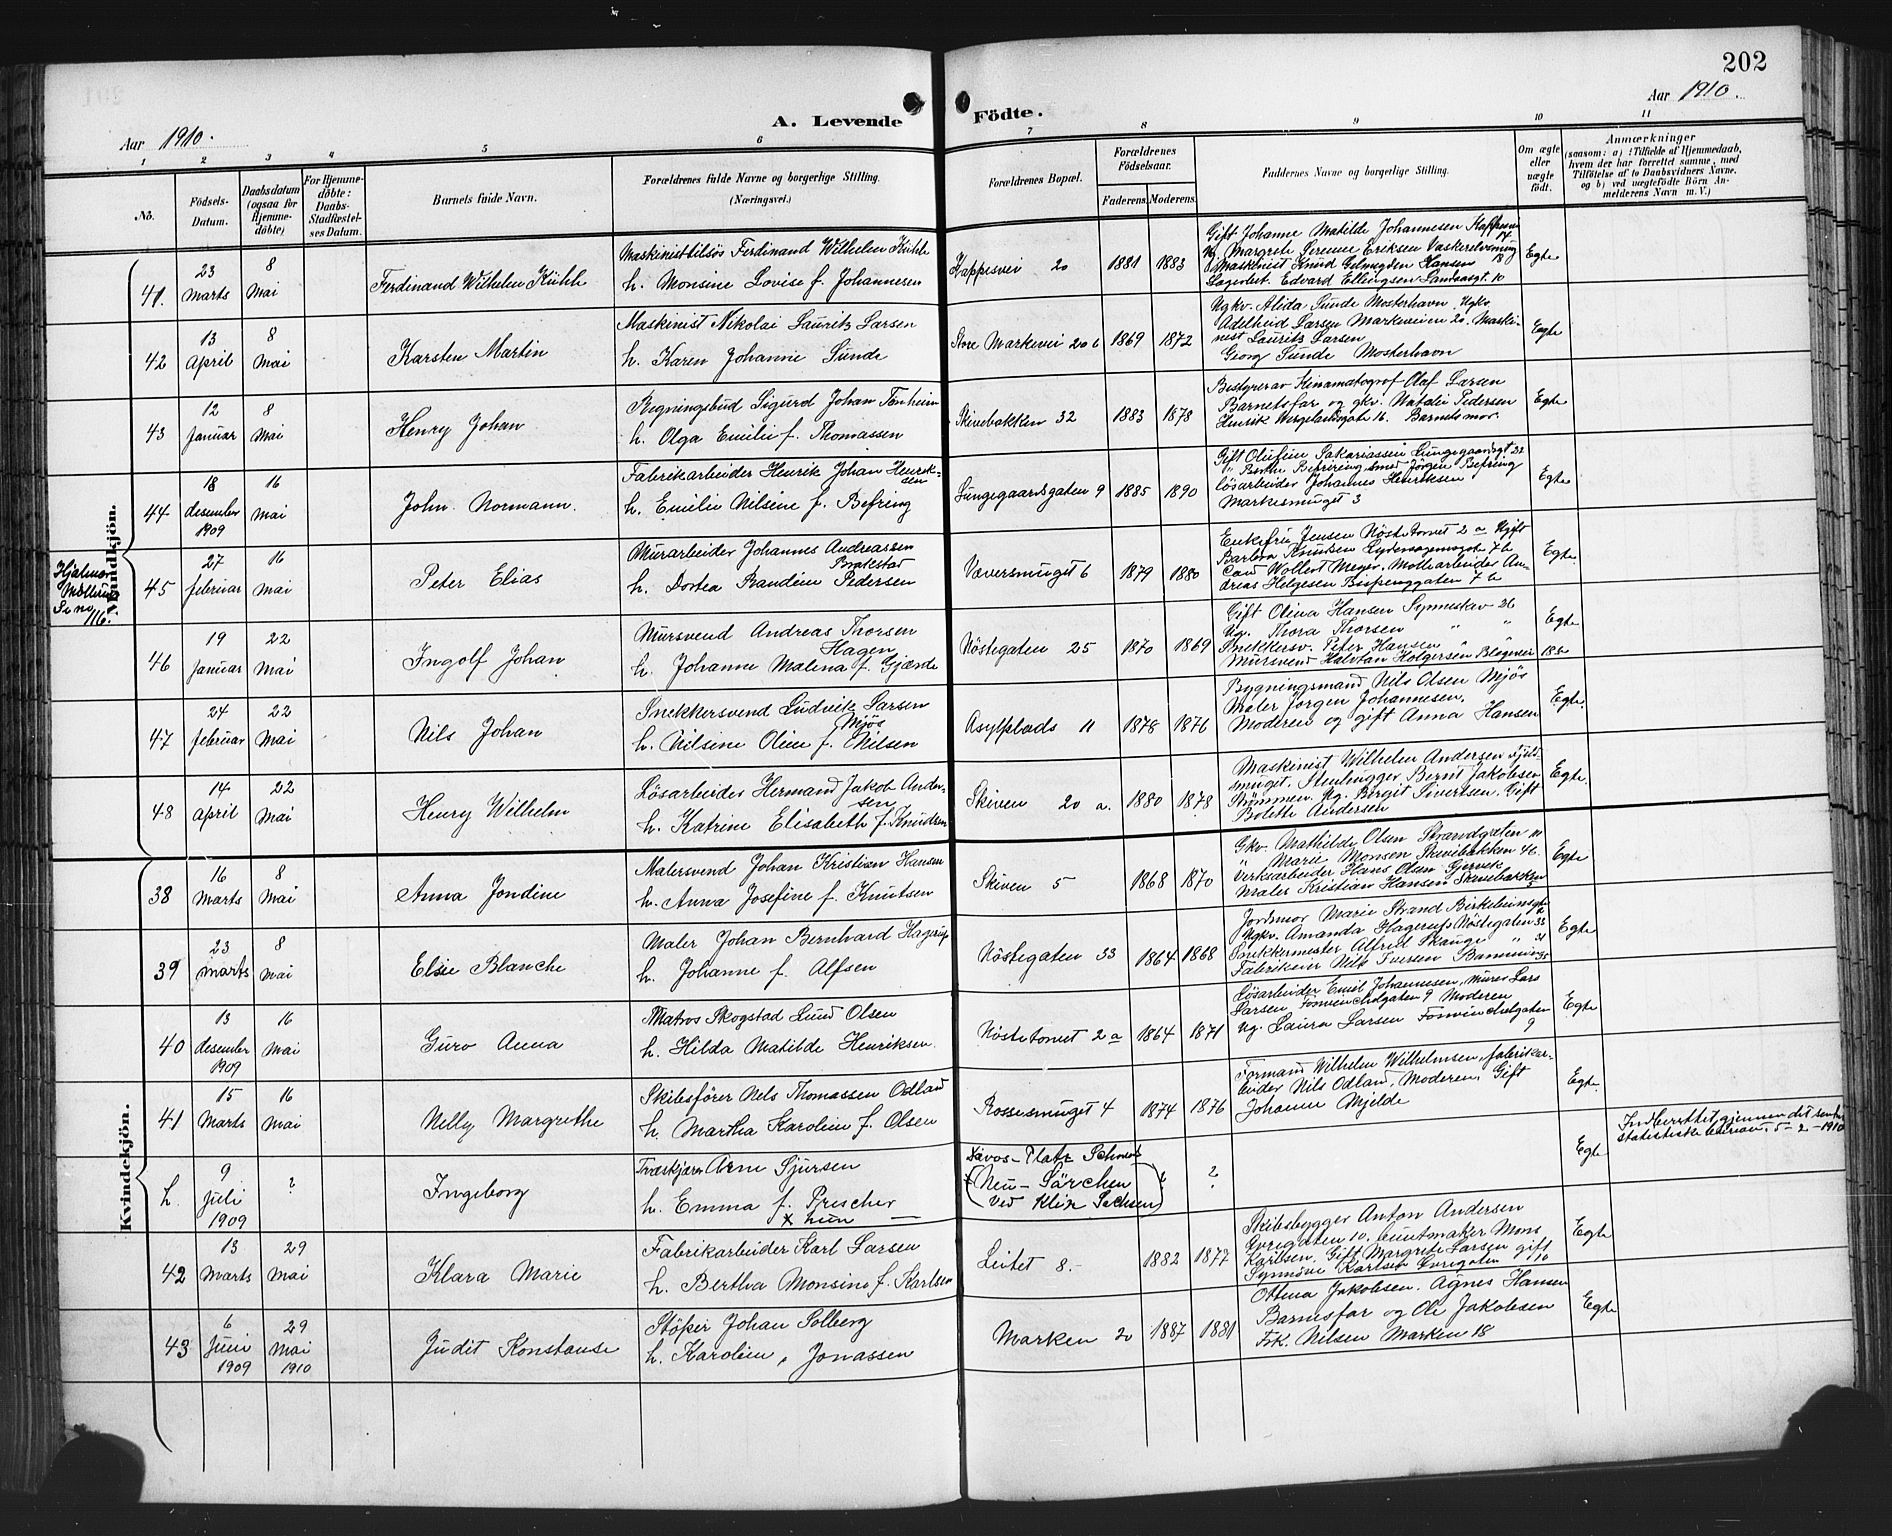 202
Aar 1910.
A. Levende Födte.
Aar 1910.
1 2 3 4 5 6 7 8 9 10 11
No.
Födsels-
Datum.
Daabsdatum
(ogsaa for
Hjemme-
döbte)
For Hjemme-
döbte:
Daabs-
Stadfestel-
ses Datum.
Barnets fulde Navn.
Forældrenes fulde Navne og borgerlige Stilling.
(Næringsvei.)
Forældrenes Bopæl.
Forældrenes
Födselsaar.
Faderens. Moderens.
Faddernes Navne og borgerlige Stilling.
Om ægte
eller
uægte
födt.
Anmærkninger
(saasom: a) i Tilfælde af Hjemmedaab,
hvem der har forrettet samme, med
Tilföielse af to Daabsvidners Navne.
og b) ved uægtefödte Börn An-
melderens Navn m. V.)
Mandkjön.
41. 23 Marts 8 Mai Ferdinand Wilhelm Kühle
Maskinisttilsös Ferdinand Wilhelm Kühle
h. Monsine Lovise f. Johannesen
Kappesvei 20 1881 1883
Gift Johanne Matilde Johannesen Kappesvei
Margrete Eriksen
Maskinist Knud Hansen 18
Edvard Ellingsen 10
Egte
42 13 April 8 Mai Karsten Martin
Maskinist Nikolai Lauritz Larsen
h. Karen Johanne Sunde
Store Markevei 20 b 1869 1872
Ugkv. Alida Sunde Mosterhavn, Ugkv
Adelheid Larsen Markeveien 20. Maski-
nist Lauritz Larsen
Georg Sunde Mosterhavn
Egte
43 12 Januar 8 Mai Henry Johan
Regningsbud Sigurd Johan Tonheim
h. Olga Emilie f. Thomassen
Skivebakken 32 1883 1878
Bestyrer av Kinamatograf Olaf Larsen
Barnetsfar og gkv. Natalie Pedersen
Henrik Wergelandsgate 16. Barnets mor.
Egte
44 18 desember 1909 16 Mai John Normann.
Fabrikarbeider Henrik Johan Henrik-
sen
h. Emilie Nilsine f. Befring
Lungegaardsgaten 9 1885 1890
Gift Olufine Sakariassen Lungegaardsgt 22
" Berthe Befring smed Jörgen Befring
lösarbeider Johannes Henriksen
Markesmuget 3
Egte
Hjalmar
45 27 februar 16 Mai Peter Elias
Murarbeider Johannes Andreassen
Brakestad
h. Dortea Brandine Pedersen
Væversmuget 6 1879 1880
Enkefru Jensen Nöstetorvet 2 a Ugift
Barbra Knudsen 76
Carl Wollert Meyer,
Helgesen
Egte
46 19 Januar 22 Mai Ingolf Johan
Mursvend Andreas Thorsen
Hagen
h. Johanne Malena f. Gjærde
Nöstegaten 25 1870 1869
Gift Olina Hansen 26
Ug. Thora Thorsen " "
Snekkersv. Peter Hansen " "
Mursvend Halvdan Holgersen
Egte
47 24 februar 22 Mai Nils Johan
Snekkersvend Ludvik Larsen
Mjös
h. Nilsine Oline f. Nilsen
Asylplads 11 1878 1876
Bygningsmand Nils Olsen Mjös
Maler Jörgen Johannesen,
Moderen og gift Anna Hansen
Egte.
48 14 April 22 Mai Henry Wilhelm
Lösarbeider Hermand Jakob Ander-
sen
h. Katrine Elisabeth f. Knudsen
Skiven 20 a. 1880 1878
Maskinist Wilhelm Andersen Fjeld-
smuget, Stenhugger Bernt Jakobsen
Strömmen. Ug. Birgit Sivertsen. Gift
Bolette Andersen
Egte
Kvindekjön.
38 16 Marts 8 Mai Anna Jondine
Malersvend Johan Kristian Hansen
h. Anna Josefine f. Knutsen
Skiven 5 1868 1870
Gkv. Mathilde Olsen Strandgaten
" Marie Monsen Skivebakken 46
Verksarbeider Hans Olsen Gjørvik
Maler Kristian Hansen Skivebakken
Egte
39 23 Marts 8 Mai Elsie Blanche
Maler Johan Bernhard Hagerup
h. Johanne f. Alfsen
Nöstegaten 33 1864 1868
Jordmor Marie Strand
Ugkv. Amanda Hagerup Nöstegaten 33
Snekkermester Alfred Skauge " 31
Fabrikeier Nils Iversen
Egte
40 13 desember 1909 16 Mai Guro Anna
Matros Skogstad Lund Olsen
h. Hilda Matilde Henriksen
Nöstetorvet 2 a 1864 1871
Lösarbeider Emil Johannesen, Murer Lars
Larsen 9 Moderen
Ug. Laura Larsen
9
Egte
41 15 Marts 16 Mai Nelly Margrethe
Skibsförer Nels Thomassen Odland
h. Martha Karoline f. Olsen
Rossesmuget 4 1874 1876
Formand Wilhelm Wilhelmsen, fabrikar-
beider Nils Odland, Moderen, Gift
Johanne Mjelde
Egte.
h. 9 Juli 1909 ? Ingeborg
Træskjærer Arne Sjursen
h. Emma f. Prescher
x hun —
Davos-Platz Schweis
x (Neu-Särchen
ved Klix Sachsen)
? ?
Egte
Indberettet gjennem det sentr.
statistiske bureau, 5-2-1910
42 13 Marts 29 Mai Klara Marie
Fabrikarbeider Karl Larsen
h. Bertha Monsine f. Karlsen
Leitet 8. 1882 1877
Skibsbygger Anton Andersen
10, buntmaker Mons
Karlsen, Gift Margrete Larsen gift
Synnöve Karlsen 10
Egte
43 6 Juni 1909 29 Mai 1910 Judit Konstanse
Stöper Johan Solberg
h. Karoline, Jonassen
Marken 20 1887 1881
Ottina Jakobsen. Agnes Hansen
Barnesfar og Ole Jakobsen
Frk. Nilsen Marken 18
Egte